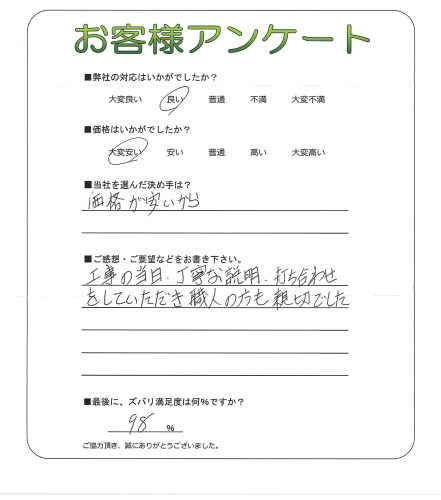 お客様アンケート
■弊社の対応はいかがでしたか？
大変良い　良い　普通　不満　大変不満
■価格はいかがでしたか？
大変安い　安い　普通　高い　大変高い
■当社を選んだ決め手は？
価格が安いから
■ご感想・ご要望などをお書き下さい。
工事の当日、丁寧な説明、打ち合わせ
をしていただき職人の方も親切でした
■最後に、ズバリ満足度は何%ですか？
98 %
ご協力頂き、誠にありがとうございました。